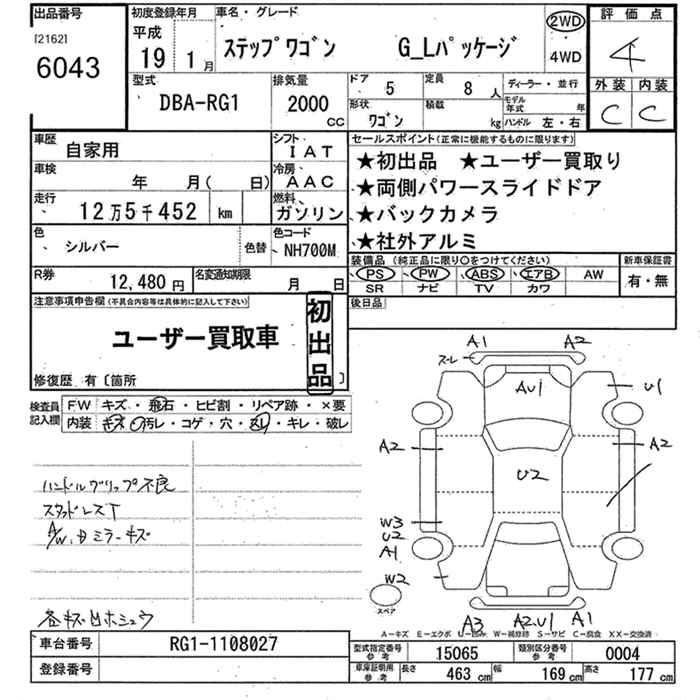 出品番号 初度登録年月 車名・グレード 評価点
[2162] 平成
6043 19 1月 ステップワゴン G_Lパッケージ 2WD 4WD 4
型式 排気量 ドア 定員 ディーラー・並行 外装 内装
DBA-RG1 2000 CC 5 8人 モデル年式 年 C C
形状 積載
ワゴン kg ハンドル 左・右
車歴 自家用 シフト IAT セールスポイント(正常に機能するものに限ります)
★初出品 ★ユーザー買取り
車検 年 月( 日) 冷房 AAC
★両側パワースライドドア
走行 12万5千452 km 燃料 ガソリン
★バックカメラ
色 シルバー 色替 色コード NH700M
★社外アルミ
装備品(純正品に限り○をつけてください) 新車保証書
R券 12,480円 名変通知期限 月 日
PS PW ABS エアB AW 有・無
SR ナビ TV カワ
注意事項申告欄(不具合内容等は具体的に記入して下さい) 後日品
ユーザー買取車 初出品
修復歴 有〔箇所 〕
検査員記入欄 FW キズ・飛石・ヒビ割・リペア跡・×要
内装 キズ・汚レ・コゲ・穴・スレ・キレ・破レ
A1 A2
スーレ
AU1 U1
A2 A2
ハンドルグリップ不良 U2
スタッドレスT
A/W、ミラーキズ W3
U2
A1
W2
スペア
各キズ凹ホシュウ A3 A2.U1 A1
A-キズ E-エクボ U-凹み W-補修跡 S-サビ C-腐食 XX-交換済
車台番号 RG1-1108027
型式指定番号 参考 15065 類別区分番号 参考 0004
登録番号 車庫証明用 参考 長さ 463 cm 幅 169 cm 高さ 177 cm